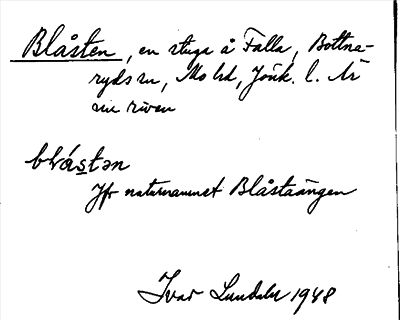 Blåsten, en stuga å Falla, Bottna-
ryds sn, Mo hd, Jönk. l. Är
nu riven
blåstən
Jfr naturnamnet Blåstaängen
Ivar Lundahl 1948